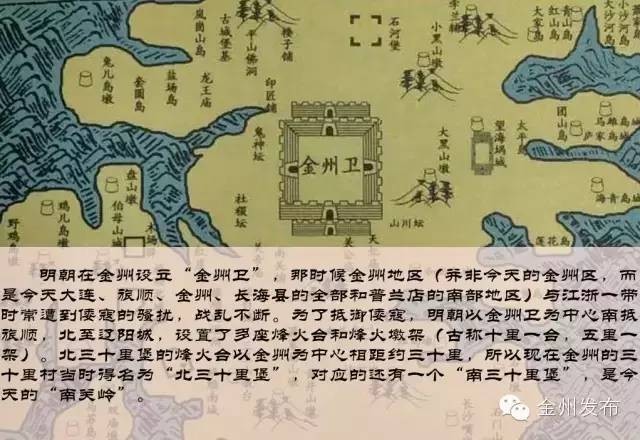 岚崮山岛
古城堡基
平山佛洞
楼子铺
石河堡
李兰铺
小黑山墩
大家岛
红山岛
青山岛
大沙河岛
小沙河岛
兔儿岛墩
套圈岛
盐场岛
龙王庙
印匠铺
鬼神坛
金州卫
大黑山墩
望海埚城
太平岛
团山岛
马家岛
雄岛城
盘山墩
鸡儿岛墩
伯母山城
野鸡岛墩
木场
社稷坛
山川坛
海青岛
莲花岛
明朝在金州设立“金州卫”，那时候金州地区（并非今天的金州区，而
是今天大连、旅顺、金州、长海县的全部和普兰店的南部地区）与江浙一带
时常遭到倭寇的骚扰，战乱不断。为了抵御倭寇，明朝以金州卫为中心南抵
旅顺，北至辽阳城，设置了多座烽火台和烽火墩架（古称十里一台，五里一
架）。北三十里堡的烽火台以金州为中心相距约三十里，所以现在金州的三
十里村当时得名为“北三十里堡”，对应的还有一个“南三十里堡”，是今
天的“南关岭”。
金州发布